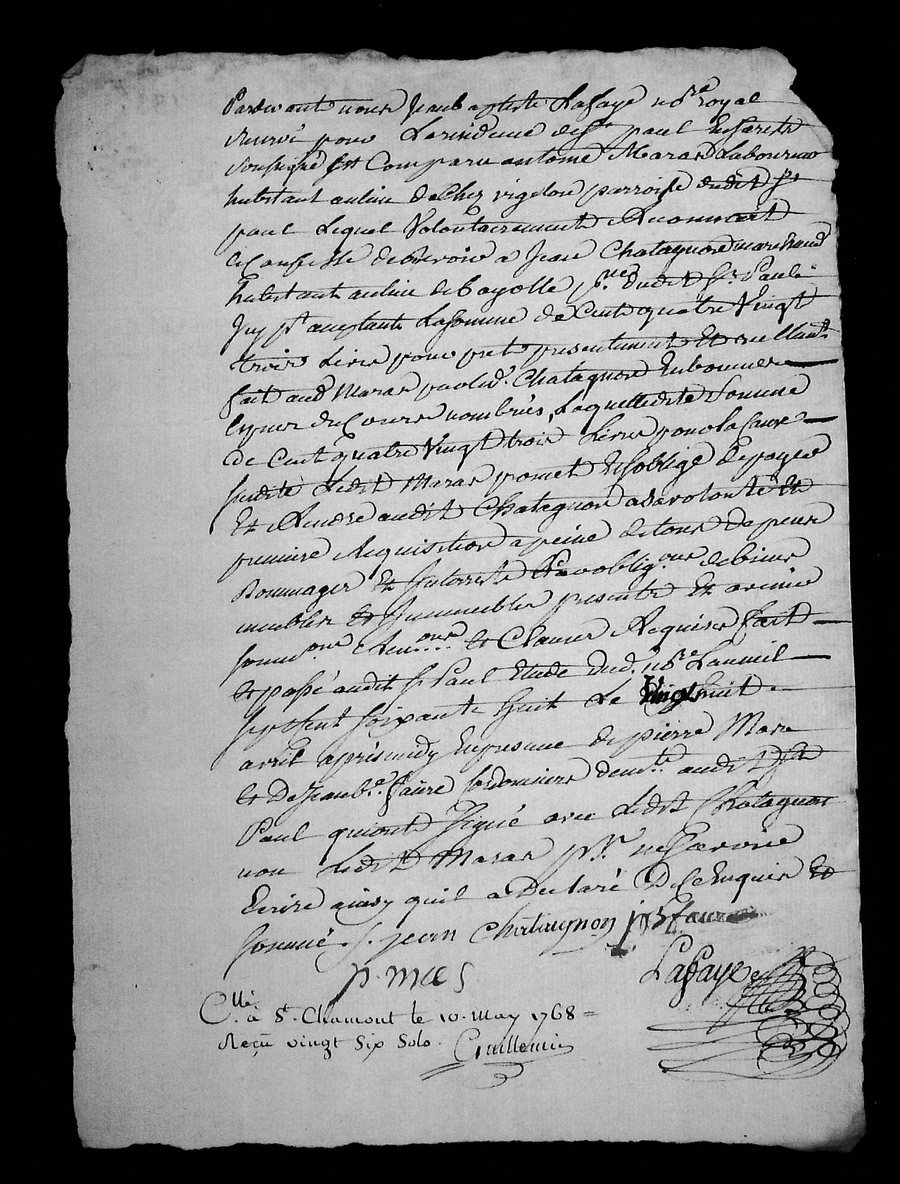 Pardevant nous Jean baptiste Lafaye no.re royal
Reservé pour La residence de St paul En jarets
soussigné fut Comparu antoine Maras Laboureur
habitant au lieu de Chez vigelon parroisse dudit St
paul Lequel Volontairement Reconnoit
et Confesse debvoir a Jean Chatagnon marchand
habitant au lieu de bayolle p.sse dudit St Paul
Icy pnt acceptant La somme de Cent quatre Vingt
trois Livres pour pret presentement Et reellem.t
fait aud Maras par led.t Chatagnon En bonnes
Espèces du Cours nombrées, Laquelle ditte Somme
de Cent quatre Vingt trois Livres pour la cause
susditte Ledit Maras promet Et soblige de payer
Et Rendre audit Chatagnon a sa volonté Et
premiere Requisition a peine de tous depens
Dommages Et Interrests Par oblig.on de biens
meubles Et Immeubles presents Et avenir
soum.ons Renon.ons et Clauses Requises fait
Et passé audit St Paul Etude dud. no.re L'an mil
sept cent soixante huit Le Vingt huit
avril apres midy En presence de pierre Mare
et De Jean b.te faure Cordonniers demts audit St
Paul qui ont Signé avec Ledit Chatagnon
non Ledit Maras pour ne sçavoir
Ecrire ainsy qu'il a Declaré De ce Enquis Et
sommé. J. jean Chataignon jpbt faure
p. maes Lafaye
C.llé à St. Chamont le 10. May 1768
Reçu vingt Six Sols. Guillemin